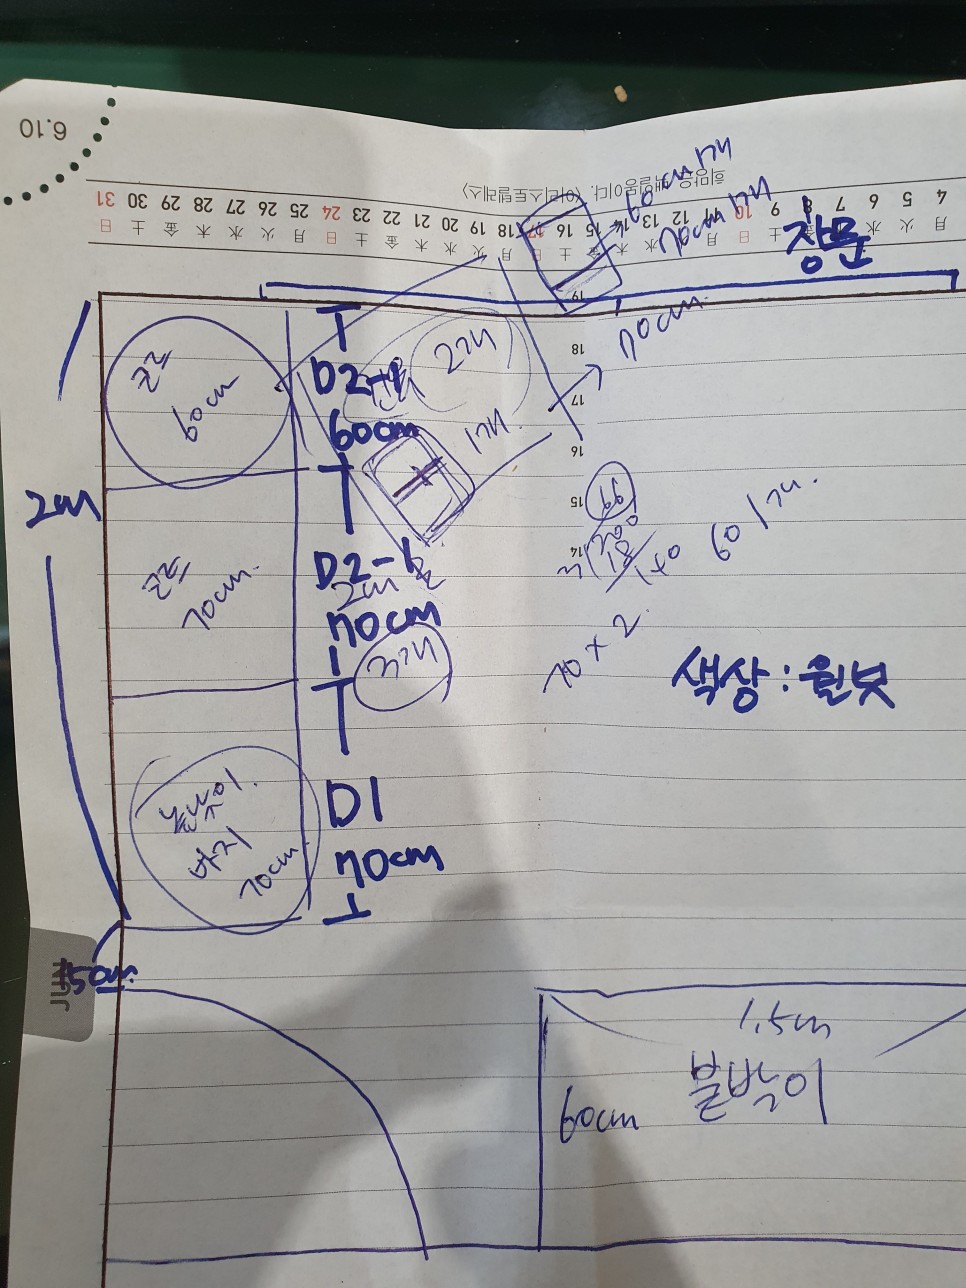 6.10
희망은 백일몽이다. 〈아리스토텔레스〉
31 30 29 28 27 26 25 24 23 22 21 20 19 18 17 16 15 14 13 12 11 10 9 8 7 6 5 4
日 土 金 木 水 火 月 日 土 金 木 水 火 月 日 土 金 木 水 火 月 日 土 金 木 水 火 月
60cm 1개
70cm 1개
창문
19
18
17
16
15
14
70cm
긴
60cm
D2-
2개
60cm
1개.
2m
긴
70cm.
D2-
70cm
3개
200
18
140
60 1개.
70 × 2.
색상 : 월넛
바지
70cm
D1
70cm
50cm
1.5m
60cm
붙박이